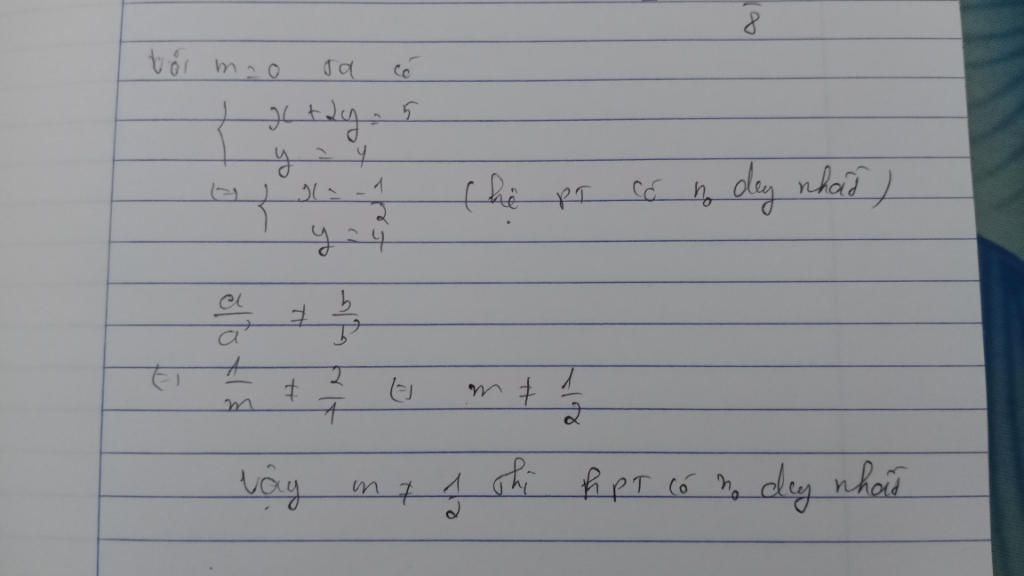 8
với m = 0 ta có
{ x + 2y = 5
y = 4
(=) { x = -1/2 (hệ PT có no duy nhất)
y = 4
a/a' ≠ b/b'
(=) 1/m ≠ 2/1 (=) m ≠ 1/2
Vậy m ≠ 1/2 thì hPT có no duy nhất